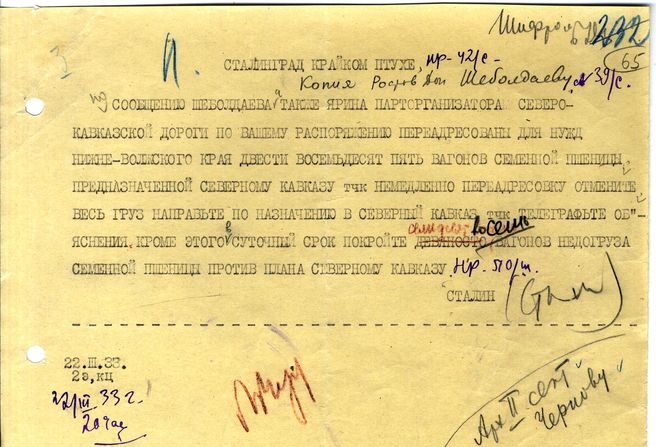 Шифром
232
65
3
П.
СТАЛИНГРАД КРАЙКОМ ПТУХЕ. нр-42/с-
Копия Ростов Дон Шеболдаеву. № 39/с.
по СООБЩЕНИЮ ШЕБОЛДАЕВА а ТАКЖЕ ЯРИНА ПАРТОРГАНИЗАТОРА СЕВЕРО-
КАВКАЗСКОЙ ДОРОГИ ПО ВАШЕМУ РАСПОРЯЖЕНИЮ ПЕРЕАДРЕСОВАНЫ ДЛЯ НУЖД
НИЖНЕ-ВОЛЖСКОГО КРАЯ ДВЕСТИ ВОСЕМЬДЕСЯТ ПЯТЬ ВАГОНОВ СЕМЕННОЙ ПШЕНИЦЫ,
ПРЕДНАЗНАЧЕННОЙ СЕВЕРНОМУ КАВКАЗУ ТЧК НЕМЕДЛЕННО ПЕРЕАДРЕСОВКУ ОТМЕНИТЕ,
ВЕСЬ ГРУЗ НАПРАВЬТЕ ПО НАЗНАЧЕНИЮ В СЕВЕРНЫЙ КАВКАЗ ТЧК ТЕЛЕГРАФЬТЕ ОБ"-
семьдесят восемь
ЯСНЕНИЯ. КРОМЕ ЭТОГО в СУТОЧНЫЙ СРОК ПОКРОЙТЕ ДЕВЯНОСТО ВАГОНОВ НЕДОГРУЗА
СЕМЕННОЙ ПШЕНИЦЫ ПРОТИВ ПЛАНА СЕВЕРНОМУ КАВКАЗУ. НР-50/ш.
СТАЛИН
22.III.33.
2э,кц
22/III 33 г.
20 час
Арх II сект
Чернову